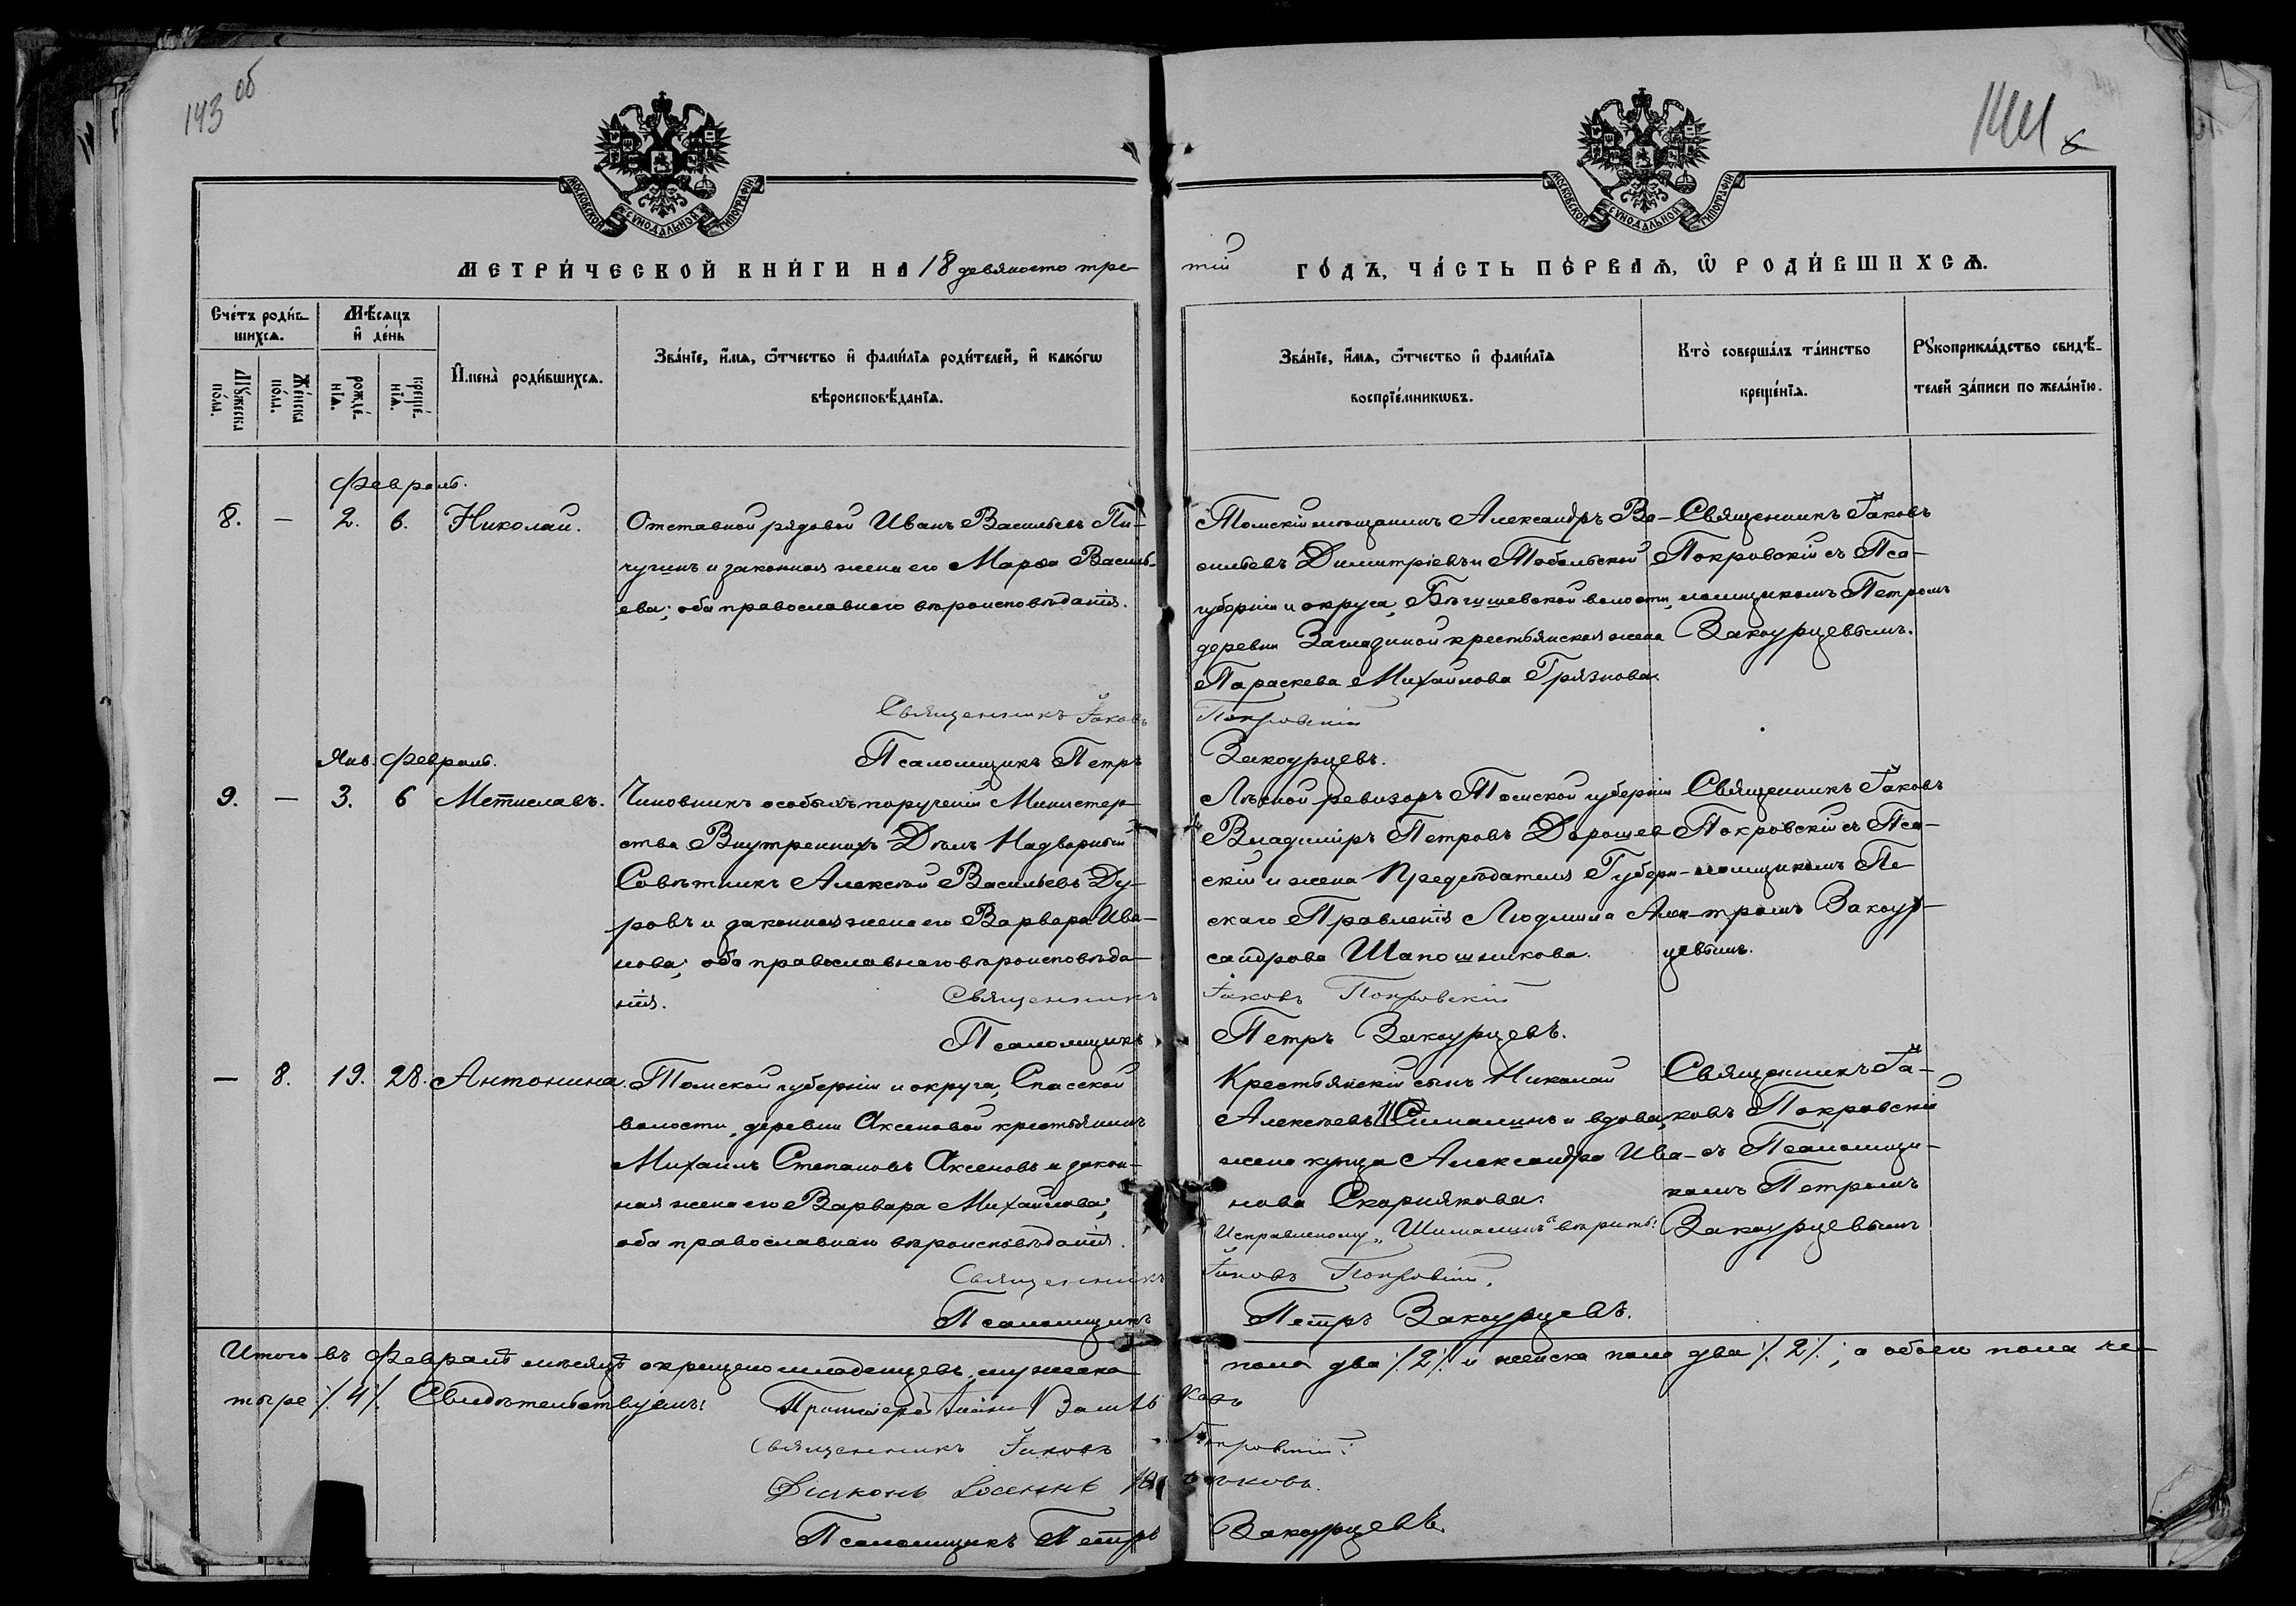 143 об
144
МОСКОВСКОЙ СѴНОДАЛЬНОЙ ТИПОГРАФІИ
МОСКОВСКОЙ СѴНОДАЛЬНОЙ ТИПОГРАФІИ
МЕТРИ́ЧЕСКОЙ КНИ́ГИ НА 18 девяносто тре-
тій ГО́ДЪ, ЧА́СТЬ ПЕ́РВАѦ, Ѡ РОДИ́ВШИХСѦ.
Сче́тъ роди́в-
шихсѧ.
Мѣ́сѧцъ
и҆ де́нь
Мꙋ́жеска по́ла.
Же́нска по́ла.
рожде́-нїѧ.
креще́-нїѧ.
И҆мена̀ роди́вшихсѧ.
Зва́нїе, и҆́мѧ, ѻ҆́тчество и҆ фами́лїѧ роди́телей, и҆ како́гѡ
вѣроисповѣ́данїѧ.
Зва́нїе, и҆́мѧ, ѻ҆́тчество и҆ фами́лїѧ
воспрїе́мникѡвъ.
Кто̀ соверша́лъ та́инство
креще́нїѧ.
Рꙋкоприкла́дство свидѣ́-
телей за́писи по жела́нїю.
Февраль.
8. — 2. 6. Николай.
Отставной рядовой Иванъ Васильевъ Пи-
чугинъ и законная жена его Марѳа Василь-
ева; оба православнаго вѣроисповѣданія.
Томскій мѣщанинъ Александръ Ва-
сильевъ Димитріевъ и Тобольской
губерніи и округа, Бѣгишевской волости,
деревни Загваздиной крестьянская жена
Параскева Михайлова Грязнова.
Священникъ Іаковъ
Покровскій съ Пса-
ломщикомъ Петромъ
Закоурцевымъ.
Священникъ Іаковъ Покровскій
Псаломщикъ Петръ Закоурцевъ.
Янв. Февраль.
9. — 3. 6 Мстиславъ.
Чиновникъ особыхъ порученій Министер-
ства Внутреннихъ Дѣлъ Надворный
Совѣтникъ Алексѣй Васильевъ Ду-
ровъ и законная жена его Варвара Ива-
нова; оба православнаго вѣроисповѣда-
нія.
Лѣсной ревизоръ Томской губерніи
Владиміръ Петровъ Дорошев-
скій и жена Предсѣдателя Губерн-
скаго Правленія Людмила Алек-
сандрова Шапошникова.
Священникъ Іаковъ
Покровскій съ Пса-
ломщикомъ Пе-
тромъ Закоур-
цевымъ.
Священникъ Іаковъ Покровскій
Псаломщикъ Петръ Закоурцевъ.
— 8. 19. 28. Антонина.
Томской губерніи и округа, Спасской
волости, деревни Аксеновой крестьянинъ
Михаилъ Степановъ Аксеновъ и закон-
ная жена его Варвара Михайлова;
оба православнаго вѣроисповѣданія.
Крестьянскій сынъ Николай
Алексѣевъ Шималинъ и вдова,
жена купца Александра Ива-
нова Скорнякова.
Исправленному „Шималинъ“ вѣрить:
Священникъ Іа-
ковъ Покровскій
съ Псаломщи-
комъ Петромъ
Закоурцевымъ
Священникъ Іаковъ Покровскій.
Псаломщикъ Петръ Закоурцевъ.
Итого въ Февралѣ мѣсяцѣ окрещено младенцевъ мужеска пола два ./. 2 ./. и женска пола два ./. 2 ./.; а обоего пола че-
тыре ./. 4 ./. Свидѣтельствуемъ:
Протоіерей
Священникъ Іаковъ Покровскій.
Діаконъ
Псаломщикъ Петръ Закоурцевъ.